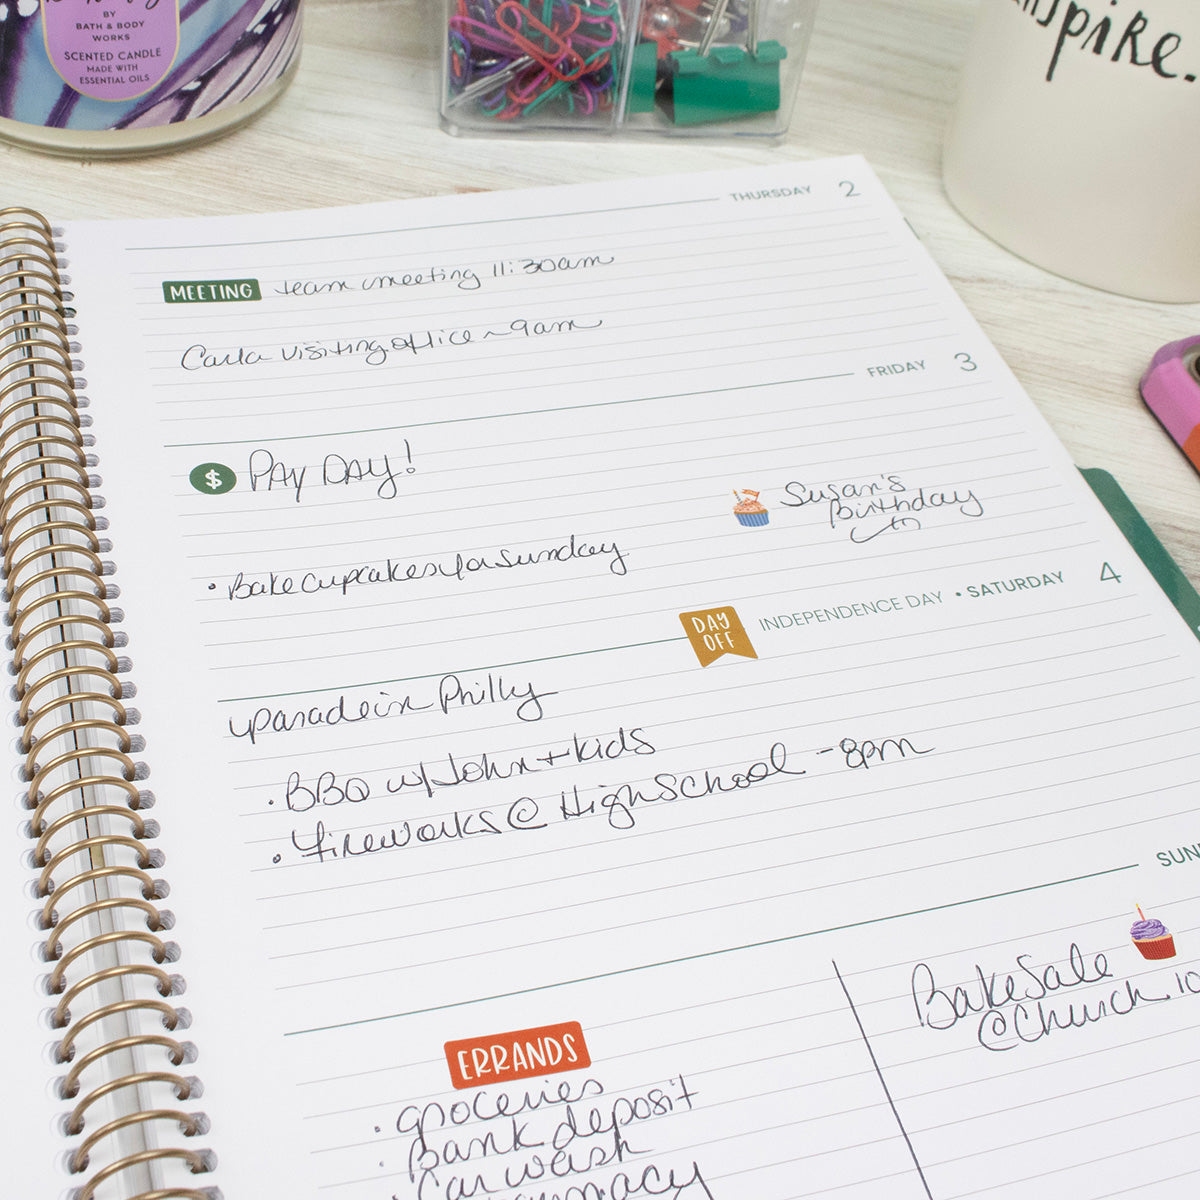 BY
BATH & BODY
WORKS
SCENTED CANDLE
MADE WITH
ESSENTIAL OILS
inspire.
THURSDAY 2
MEETING team meeting 11:30am
Carla visiting office ~ 9am
FRIDAY 3
$ PAY DAY!
Susan's
Birthday
• Bake cupcakes for Sunday
DAY
OFF
INDEPENDENCE DAY • SATURDAY 4
Parade in Philly
• BBQ w/ John + kids
• Fireworks @ High School - 8pm
SUN
Bake Sale
@ Church 10
ERRANDS
• groceries
• Bank deposit
• Car wash